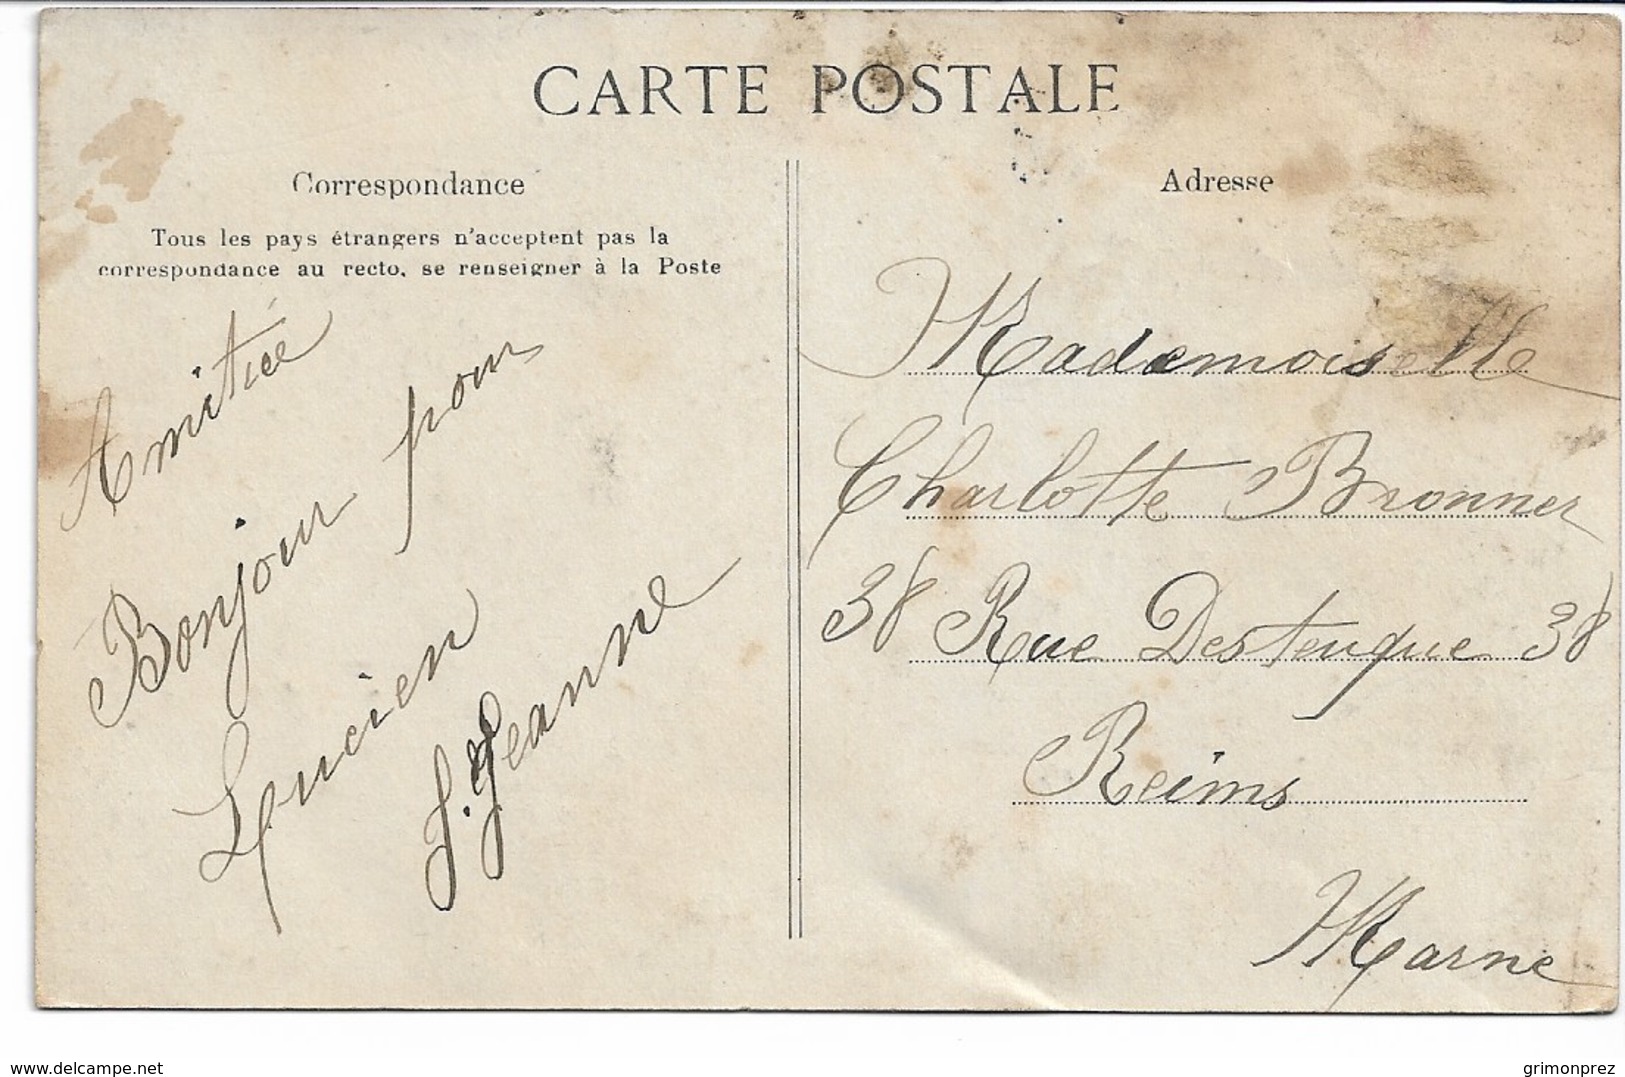 CARTE POSTALE
Correspondance
Tous les pays étrangers n'acceptent pas la
correspondance au recto, se renseigner à la Poste
Amitiée
Bonjour pour
Lucien
J. Jeanne
Adresse
Mademoiselle
Charlotte Bronner
38 Rue Desteuque 38
Reims
Marne
www.delcampe.net
grimonprez